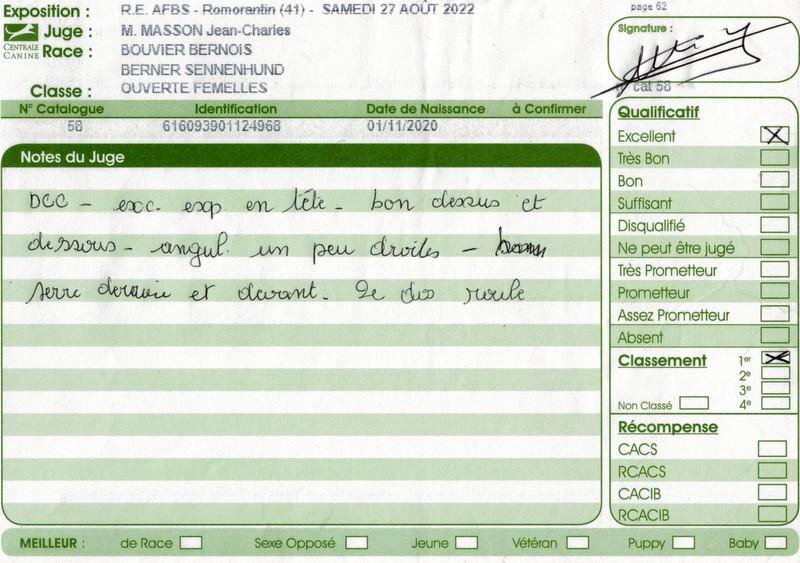 Exposition : R.E. AFBS - Romorantin (41) - SAMEDI 27 AOÛT 2022
page 62
CENTRALE CANINE
Juge : M. MASSON Jean-Charles
Race : BOUVIER BERNOIS
BERNER SENNENHUND
Classe : OUVERTE FEMELLES
Signature :
cat 58
N° Catalogue Identification Date de Naissance à Confirmer
58 616093901124968 01/11/2020
Notes du Juge
DCC - exc. exp. en tête - bon dessus et
dessous - angul. un peu droites -
serre derrière et devant. Le dos roule
Qualificatif
Excellent
Très Bon
Bon
Suffisant
Disqualifié
Ne peut être jugé
Très Prometteur
Prometteur
Assez Prometteur
Absent
Classement 1er
2e
3e
Non Classé 4e
Récompense
CACS
RCACS
CACIB
RCACIB
MEILLEUR : de Race Sexe Opposé Jeune Vétéran Puppy Baby